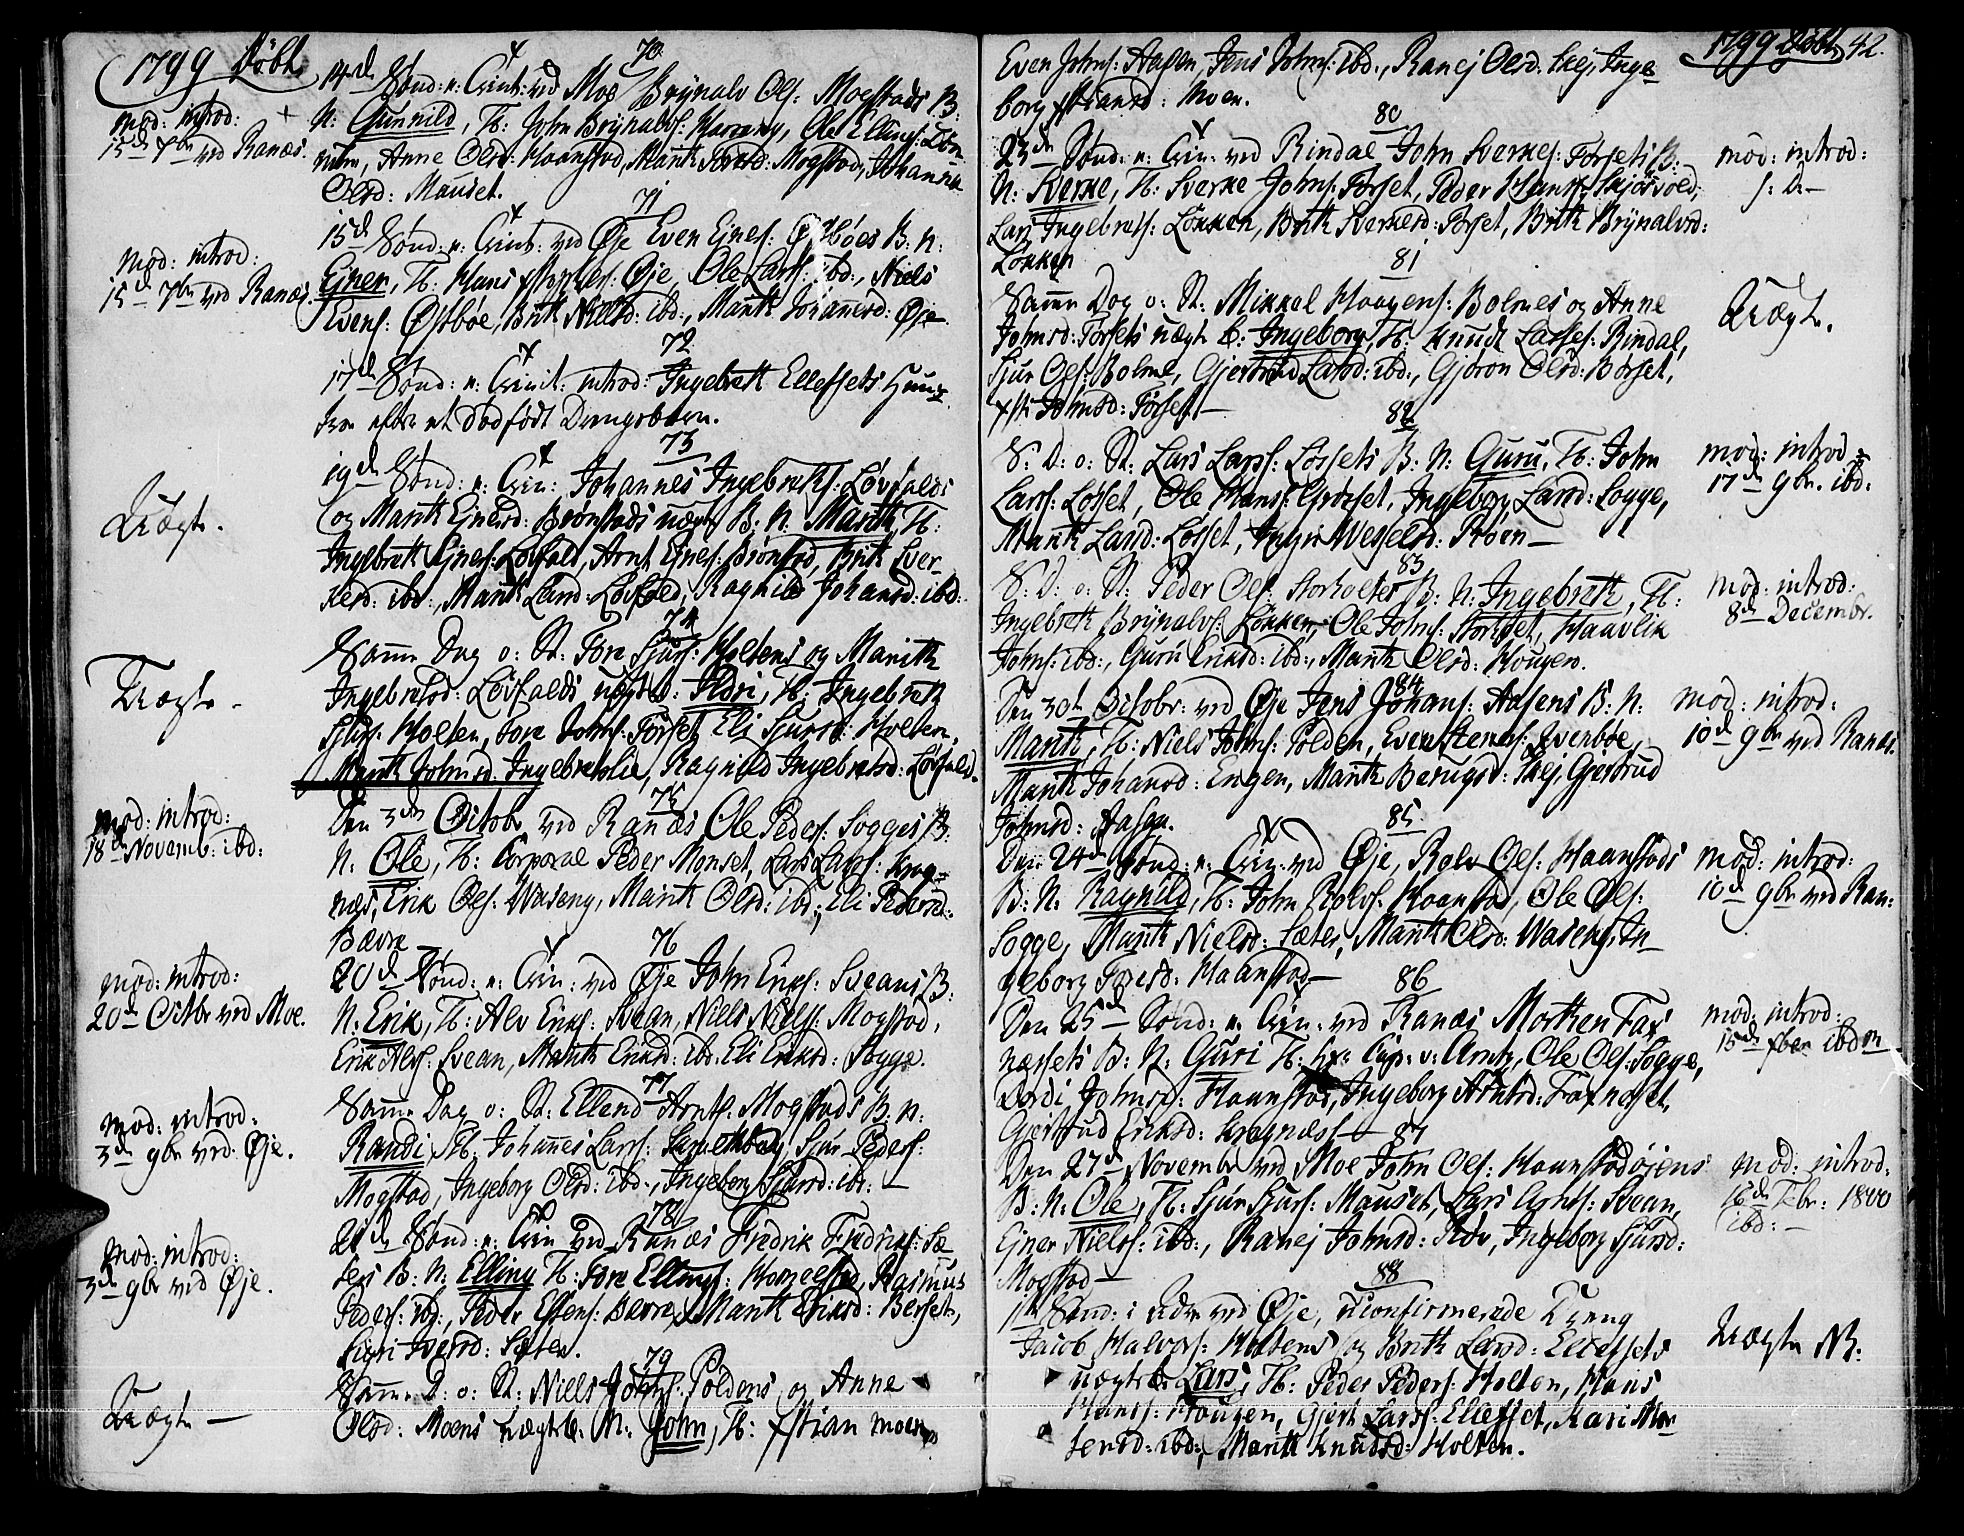 1799 Döbte
70
14de Sønd: e: Trinit: ved Moe Brÿnalv Ols: Mogstads B:
N: Gunnild, T: John Brÿnalvs: Ole Ellings:
Anne Olsd: Haanstad, Marith Toresd: Mogstad, Johanna
Olsd: Mauset.
mod: introd:
15de 7br ved Ranæs.
71
15de Sønd: e: Trinit: ved Øje Even Ejnes: Østbøes B: N:
Ejner, T: Hans Øje, Ole Larss: ibd:, Niels
Evens: Østbøe, Brit Nielsd: ibd:, Marith Johannesd: Øje.
mod: introd:
15de 7br ved Ranæs.
72
17de Sønd: e: Trinit: introd: Ingebreth Ellefsets Hust-
frue efter et dødfødt Drengebarn.
73
19de Sønd: e: Trin: Johannes Ingebrethss: Løvfalds
og Marith Ejnersd: Brønstads uægte B: N: Marith T:
Ingebreth Ejnes: Løvfald, Arnt Ejnes: Brønstad, Brith Sver-
kesd: ibd:, Marith Larsd: Løvfald, Ragnild Johansd: ibd:
Uægte.
74
Samme Dag o: St: Tore Sjurs: Holtens og Marith
Ingebretsd: Løvfalds uægte b: Sidri, T: Ingebreth
Sjurs: Holten, Tore Johns: Førset, Eli Sjursd: Holten,
Marith Johnsd: Ingebretslie, Ragnild Ingebretsd: Løvfald.
Uægte -
75
Den 3de Octobr ved Ranæs Ole Peders: Sogges B:
N: Ole, T: Corporal Peder Monset, Lars Larss: Krog-
næs, Erik Ols: Waseng, Marith Olsd: ibd:, Eli Pedersd:
Bævre
mod: introd:
18de Novemb: ibd:
76
20de Sønd: e: Trin: ved Øje John Eriks: Sveans B:
N: Erik, T: Alv Eriks: Svean, Niels Niels: Mogstad,
Erik Alvs: Svean, Marith Eriksd: ibd: Eli Eriksd: Sogge.
mod: introd:
20de Octbr ved Moe.
77
Samme Dag o: St: Ellend Arnts: Mogstads B: N:
Randi, T: Johannes Larss: Sjur Peders:
Mogstad, Ingeborg Olsd: ibd:, Ingeborg Sjursd: ibd: -
mod: introd:
3de 9br ved Øje.
78
21de Sønd: e: Trin ved Ranæs Fredrik Fredriks: Sæ-
ters B: N: Elling T: Tore Ellings: Rasmus
Peders: ibd:, Peder Estens: Bævre, Marith Eriksd: Berset,
Sigri Iversd: Sæter.
mod: introd:
3de 9br ved Øje.
79
Samme D: o: St: Niels Johns: Poldens og Anne
Olsd: Moens uægte b: N: John, T: Xstian Moen,
Uægte -
1799 Döbte 42.
Even Johns: Aasen, Jens Johns: ibd:, Ranej Olsd: Skej, Inge-
borg Xstiansd: Moen.
80
23de Sønd: e: Trin: ved Rindal John Sverkes: Førsets B:
N: Sverke, T: Sverke Johns: Førset, Peder Hans: Skjøsvold,
Lars Ingebrets: Løkken, Brith Sverkesd: Førset, Brith Brÿnalvsd:
Løkken
mod: introd:
s: D: -
81
Samme Dag o: St: Mikkel Haagens: Bolmes og Anne
Johnsd: Førsets uægte b: Ingeborg, T: Knudt Lasses: Rindal,
Sjur Ols: Bolme, Gjertrud Larsd: ibd:, Gjøron Olsd: Børset,
Johnsd: Førset -
Uægte.
82
S: D: o: St: Lars Larss: Løssets B: N: Guru, T: John
Larss: Løsset, Ole Hans: Grøsset, Ingeborg Larsd: Sogge,
Marith Larsd: Løsset, Wessels: Røen -
mod: introd:
17de 9br. ibd:
83
S: D: o: St: Peder Ols: Storholts B: N: Ingebreth, T:
Ingebreth Brÿnalvs: Løkken, Ole Johns: Storholt, Haavlik
Johns: ibd:, Guru Eriksd: ibd:, Marith Olsd: Hougen.
mod: introd:
8de Decembr.
84
Den 30te Octobr: ved Øje Jens Johans: Aasens B: N:
Marith, T: Niels Johns: Polden, Even Stens: Evenbøe,
Marith Johansd: Engen, Marith Berugsd: Skej, Gjertrud
Johnsd: Aasen.
mod: introd:
10de 9br ved Ranæs.
85.
Den 24de Sønd: e: Trin: ved Øje, Rolv Ols: Haanstads
B: N: Ragnild, T: John Rolvs: Haanstad, Ole Ols:
Sogge, Marith Nielsd: Sæter, Marith Olsd: Waseng, In-
geborg Toresd: Haanstad -
mod: introd:
10de 9br ved Ran:
86
Den 25de Sønd: e: Trin: ved Ranæs Morthen Fax
næssets B: N: Guri T: Hr: Cap: v: Arntz, Ole Ols: Sogge,
Dordi Johnsd: Haanstad, Ingeborg Arntsd: Faxnæset,
Gjertrud Eriksd: Krognæss -
mod: introd:
15de Xber ibdm
87
Den 27de Novembr ved Moe John Ols: Haanstadøjens
B: N: Ole, T: Sjur Sjurs: Mauset, Lars Arnts: Svean,
Ejner Nielss: ibd:, Ranej Johnsd: Ingeborg Sjursd:
Mogstad -
mod: introd:
16de Febr: 1800
ibd: -
88
1ste Sønd: i Adv: ved Øje, uconfirmerede Dreng
Jacob Halvors: Holtens og Brith Larsd: Ellefsets
uægte b: Lars, T: Peder Peders: Holten, Hans
Hanss: Hougen, Gjert Larss: Ellefset, Kari Mor-
tensd: ibd:, Marith Knudsd: Holten.
Uægte NB: